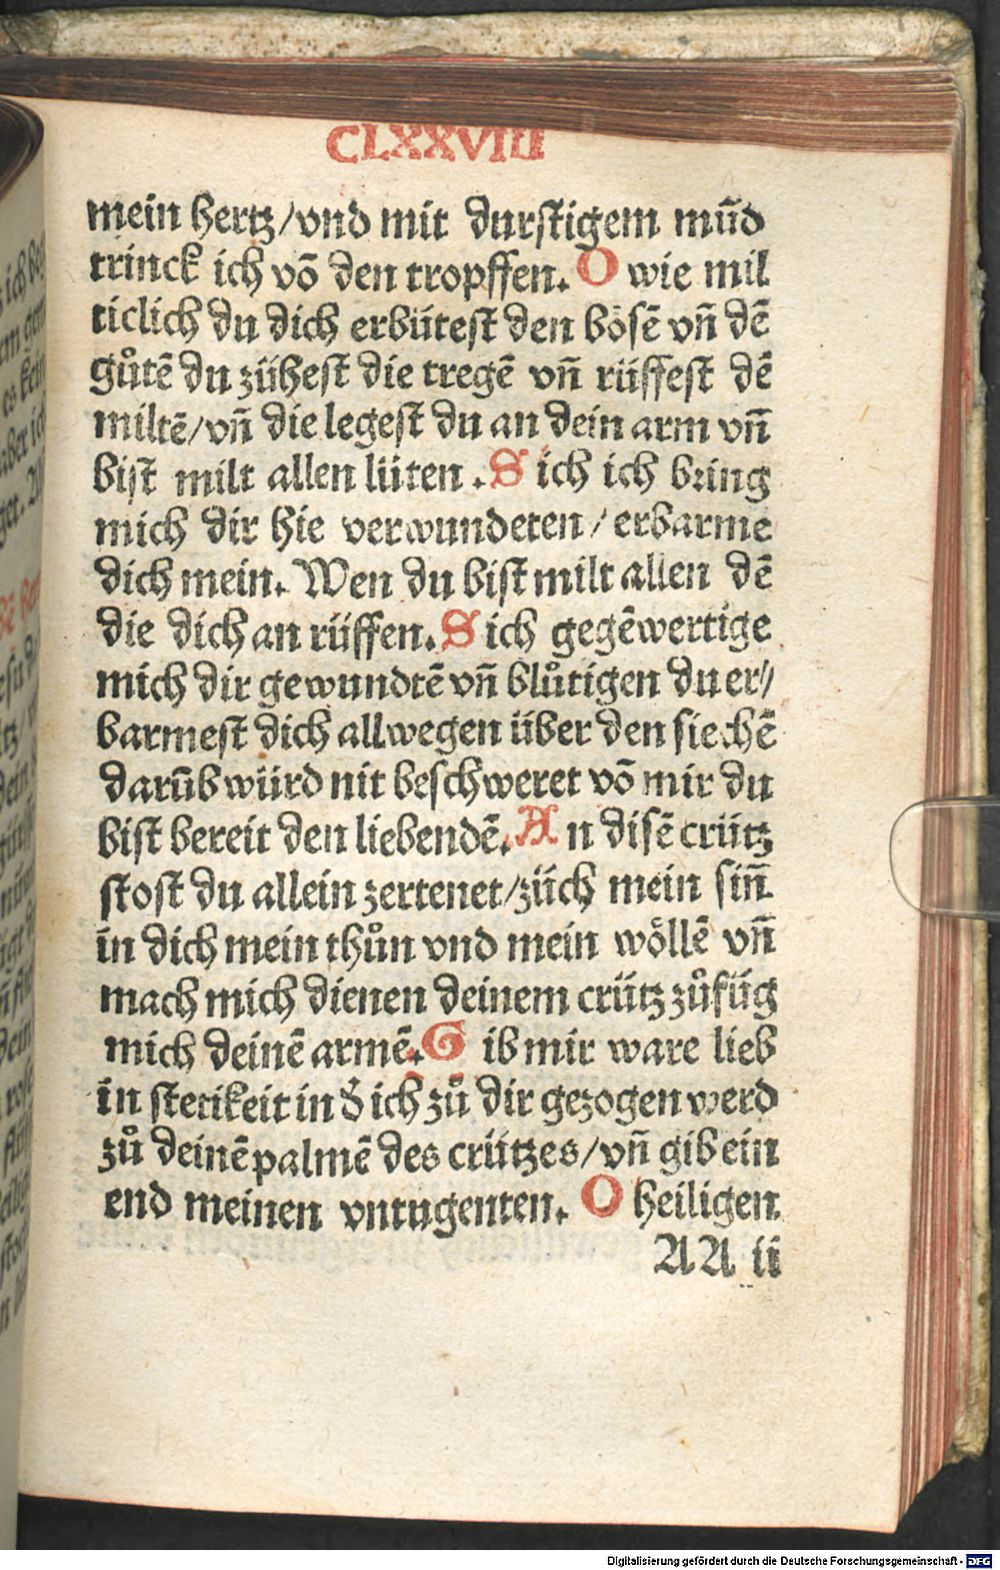 CLXXVIIII
mein hertz/vnd mit durstigem mūd
trinck ich võ den tropffen. O wie mil
ticlich du dich erbütest den bösē vñ dē
gůtē du zühest die tregē vñ rüffest dē
miltē/vñ die legest du an dein arm vñ
bist milt allen lüten. Sich ich bring
mich dir hie verwundeten/erbarme
dich mein. Wen du bist milt allen dē
die dich an rüffen. Sich gegēwertige
mich dir gewundtē vñ blůtigen du er//
barmest dich allwegen über den siechē
darūb würd nit beschweret võ mir du
bist bereit den liebendē. An disē crütz
stost du allein zertenet/züch mein siñ
in dich mein thůn vnd mein wöllē vñ
mach mich dienen deinem crütz zůfüg
mich deinē armē. Gib mir ware lieb
in stetikeit in d̕ ich zů dir gezogen werd
zů deinē palmē des crützes/vñ gib ein
end meinen vntugenten. O heiligen
AA ii
Digitalisierung gefördert durch die Deutsche Forschungsgemeinschaft - DFG